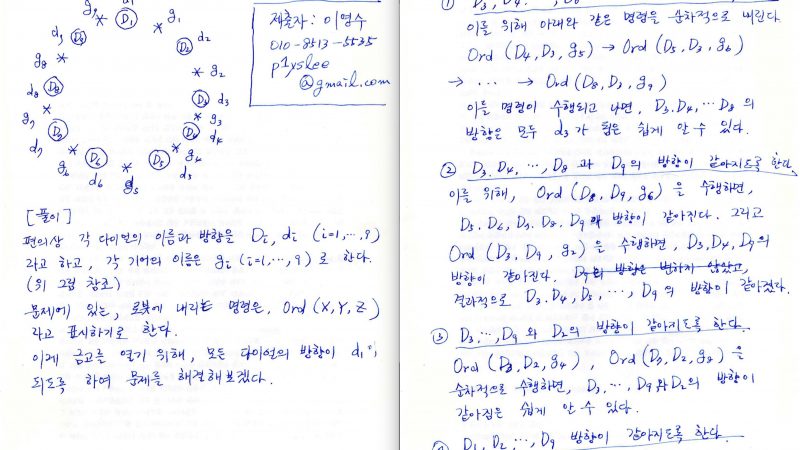 제출자: 이영수
010-8513-5535
p1yslee
@gmail.com
d1
D1
g1
d2
D2
g2
D3
d3
g3
D4
d4
g4
D5
d5
g5
D6
d6
g6
D7
d7
g7
D8
d8
g8
D9
d9
g9
[풀이]
편의상 각 다이얼의 이름과 방향을 Di, di (i=1,…,9)
라고 하고, 각 기어의 이름은 gi (i=1,…,9) 로 한다.
(위 그림 참조)
문제에 있는, 로봇에 내리는 명령은, Ord (X,Y,Z)
라고 표시하기로 한다.
이제 금고를 열기 위해, 모든 다이얼의 방향이 d1이
되도록 하여 문제를 해결해보겠다.
①
이를 위해 아래와 같은 명령을 순차적으로 내린다.
Ord (D4, D3, g5) → Ord (D5, D3, g6)
→ ‥‥ → Ord (D8, D3, g9)
이들 명령이 수행되고 나면, D3, D4, … D8 의
방향은 모두 d3 가 됨은 쉽게 알 수 있다.
② D3, D4, …, D8 과 D9 의 방향이 같아지도록 한다.
이를 위해, Ord (D8, D9, g6) 을 수행하면,
D5, D6, D7, D8, D9 의 방향이 같아진다. 그리고
Ord (D3, D9, g2) 을 수행하면, D3, D4, D9의
방향이 같아진다. D9의 방향은 변하지 않았고,
결과적으로 D3, D4, D5, …, D9 의 방향이 같아졌다.
③ D3, …, D9 와 D2의 방향이 같아지도록 한다.
Ord (D8, D2, g4) , Ord (D3, D2, g8) 을
순차적으로 수행하면, D3, …, D9와 D2의 방향이
같아짐은 쉽게 알 수 있다.
D1, D2, …, D9 방향이 같아지도록 한다.